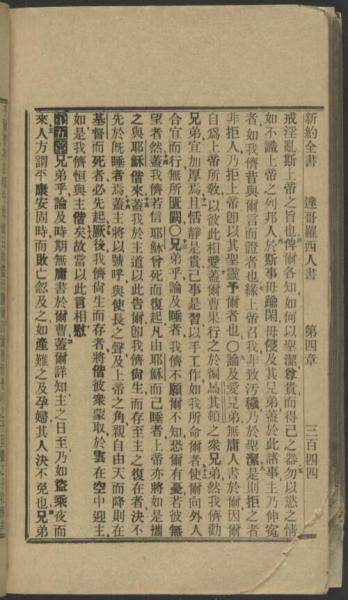 新約全書 達哥羅西人書 第四章 三百四四
戒淫亂斯上帝之旨也俾爾各知如何以聖潔尊貴而得己之器勿以慾之情
如不識上帝之列邦人於斯事毋踰閑毋侵及其兄弟蓋於此諸事主乃伸冤
者如我儕昔與爾言而證者也緣上帝召我非致汚穢乃於聖潔是則拒之者
非拒人乃拒上帝卽以其聖靈予爾者也〇論及愛兄弟無庸人書於爾因爾
自爲上帝所敎以彼此相愛蓋爾曹果行之於徧馬其頓之衆兄弟然我儕勸
兄弟宜加厚焉且恬靜是貴己事是習以手工作如我所命爾者使爾向外人
合宜而行無所匱闕〇兄弟乎論及睡者我儕不願爾不知恐爾有憂若彼無
望者然蓋我儕若信耶穌曾死而復起凡由耶穌而已睡者上帝亦將如是攜
之與耶穌偕來蓋我於主道以此告爾卽我儕尙生而存至主之復在者決不
先於旣睡者焉蓋主將以號呼與使長之聲及上帝之角親自由天而降則在
基督而死者必先起厥後我儕尙生而存者將偕彼衆蒙取於雲在空中迎主
如是我儕恒與主偕矣故當以此言相慰
第五章兄弟乎論及時期無庸書於爾曹蓋爾詳知主之日至乃如盜乘夜而
來人方謂平康安固時而敗亡忽及之如產難之及孕婦其人決不免也兄弟